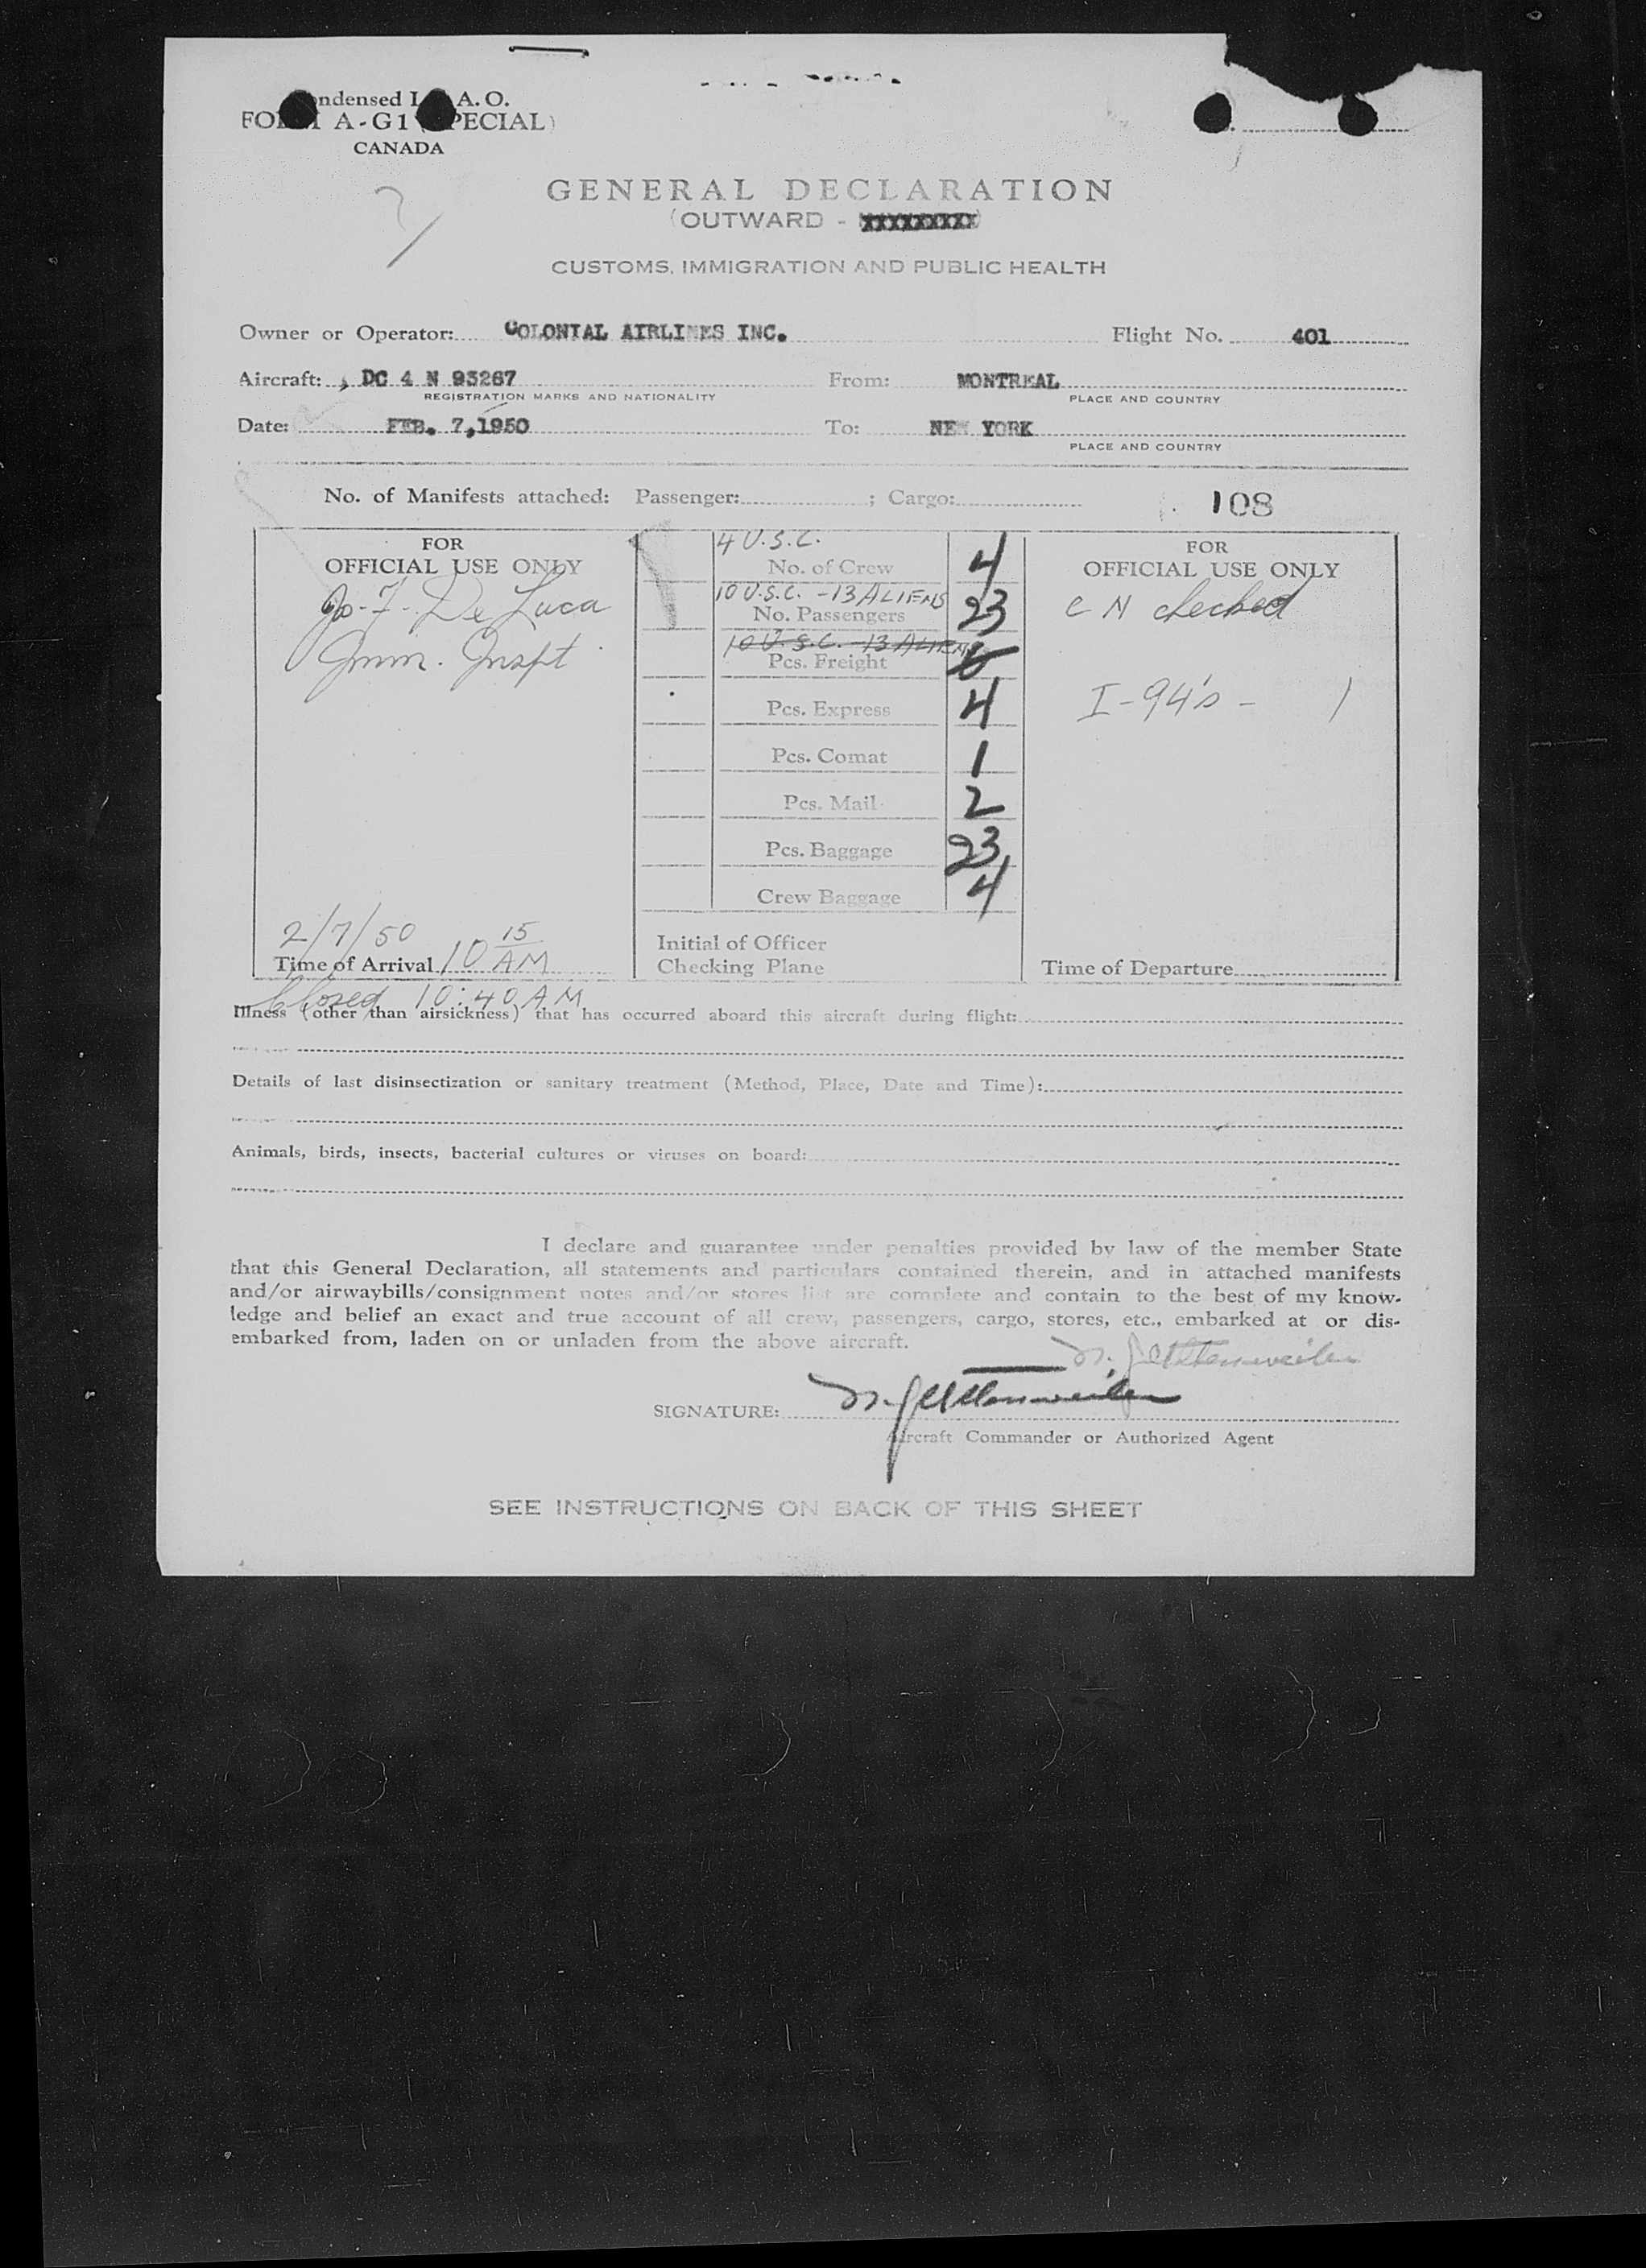 ndensed I A. O.
FO A-G1 PECIAL)
CANADA
GENERAL DECLARATION
(OUTWARD - XXXXXXXXX)
CUSTOMS, IMMIGRATION AND PUBLIC HEALTH
Owner or Operator: COLONIAL AIRLINES INC. Flight No. 401
Aircraft: , DC 4 N 93267 From: MONTREAL
REGISTRATION MARKS AND NATIONALITY PLACE AND COUNTRY
Date: FEB. 7,1950 To: NEW YORK
PLACE AND COUNTRY
No. of Manifests attached: Passenger: ; Cargo: 108
FOR
OFFICIAL USE ONLY
De Luca
Imm. Inspt
2/7/50
Time of Arrival 10 15 AM
Closed 10:40 AM
4 U.S.C.
No. of Crew 4
10 U.S.C. - 13 ALIENS
No. Passengers 23
10 U.S.C. - 13 ALIENS
Pcs. Freight
Pcs. Express 4
Pcs. Comat 1
Pcs. Mail 2
Pcs. Baggage 23
Crew Baggage 4
Initial of Officer
Checking Plane
FOR
OFFICIAL USE ONLY
C N checked
I-94's - 1
Time of Departure
Illness (other than airsickness) that has occurred aboard this aircraft during flight:
Details of last disinsectization or sanitary treatment (Method, Place, Date and Time):
Animals, birds, insects, bacterial cultures or viruses on board:
I declare and guarantee under penalties provided by law of the member State
that this General Declaration, all statements and particulars contained therein, and in attached manifests
and/or airwaybills/consignment notes and/or stores list are complete and contain to the best of my know-
ledge and belief an exact and true account of all crew, passengers, cargo, stores, etc., embarked at or dis-
embarked from, laden on or unladen from the above aircraft.
SIGNATURE:
Aircraft Commander or Authorized Agent
SEE INSTRUCTIONS ON BACK OF THIS SHEET